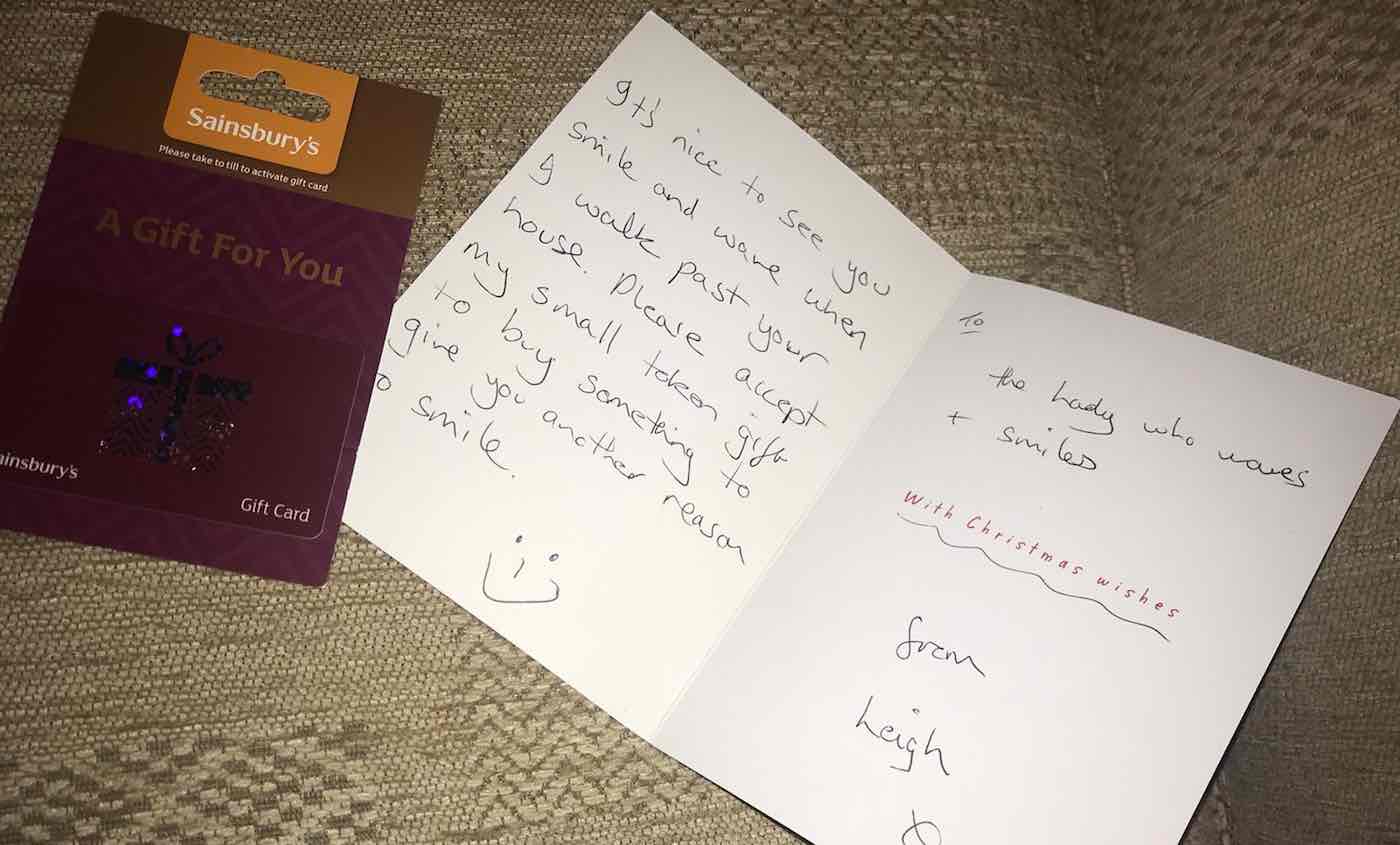 Sainsbury's
Please take to till to activate gift card
A Gift For You
ainsbury's
Gift Card
It's nice to see you
smile and wave when
I walk past your
house. Please accept
my small token gift
to buy something to
give you another reason
o smile.
To
the lady who waves
+ smiles
With Christmas wishes
from
Leigh